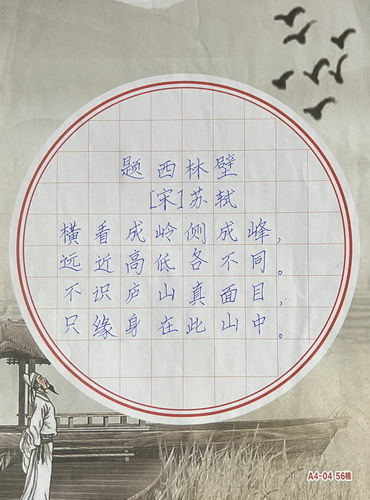 题西林壁
[宋]苏轼
横看成岭侧成峰，
远近高低各不同。
不识庐山真面目，
只缘身在此山中。
A4-04 56格